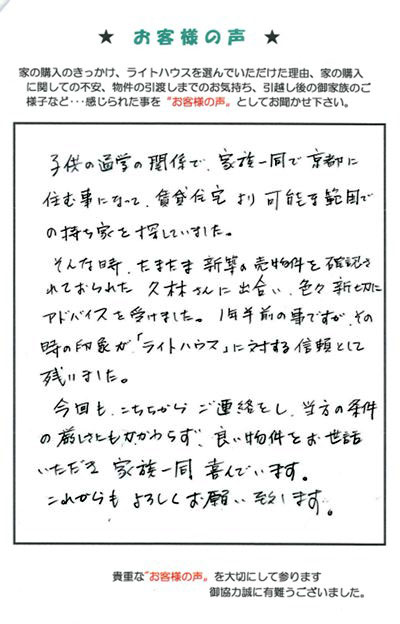 ★ お客様の声 ★
家の購入のきっかけ、ライトハウスを選んでいただけた理由、家の購入
に関しての不安、物件の引渡しまでのお気持ち、引越し後の御家族のご
様子など・・・感じられた事を“お客様の声„としてお聞かせ下さい。
子供の通学の関係で、家族一同で京都に
住む事になって、賃貸住宅より可能な範囲で
の持ち家を探していました。
そんな時、たまたま新築の売物件を確認さ
れておられた久林さんに出合い、色々親切に
アドバイスを受けました。1年半前の事ですが、その
時の印象が、「ライトハウス」に対する信頼として
残りました。
今回も、こちらからご連絡をし、当方の条件
の厳しさにもかかわらず、良い物件をお世話
いただき家族一同喜んでいます。
これからもよろしくお願い致します。
貴重な“お客様の声„を大切にして参ります
御協力誠に有難うございました。